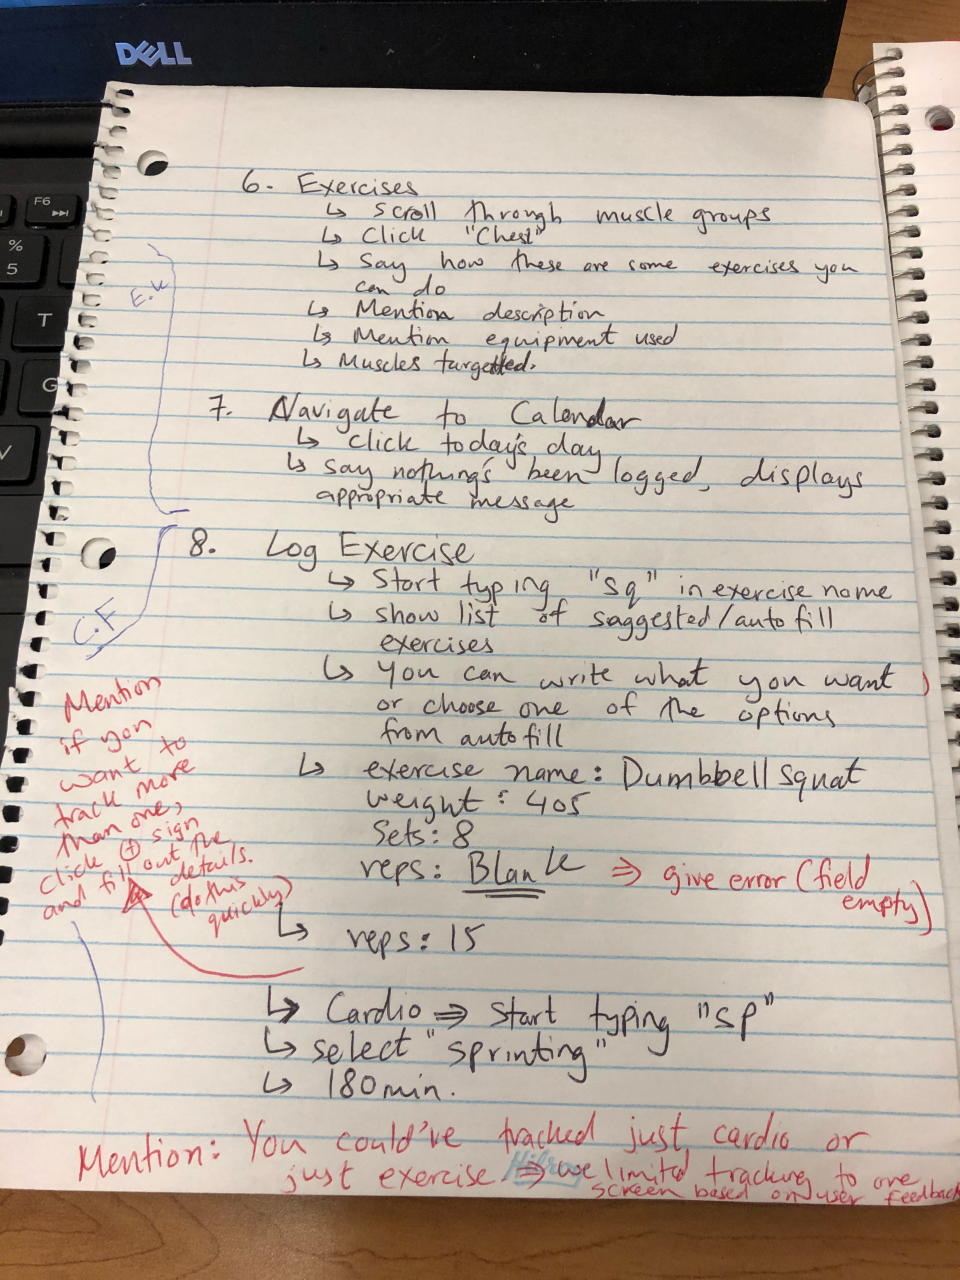 DELL
F6
%
5
T
G
V
6. Exercises
↳ Scroll through muscle groups
↳ Click "Chest"
↳ Say how these are some exercises you
can do
↳ Mention description
↳ Mention equipment used
↳ Muscles targetted.
E.K
7. Navigate to Calendar
↳ Click today's day
↳ Say nothing's been logged, displays
appropriate message
8. Log Exercise
↳ Start typing "sq" in exercise name
↳ show list of saggested/autofill
exercises
↳ you can write what you want
or choose one of the options
from autofill
C.F
↳ exercise name: Dumbbell squat
weight: 405
Sets: 8
reps: Blank ⇒ give error (field
empty)
↳ reps: 15
Mention
if you
want to
track more
than one,
click ⊕ sign
and fill out the
details.
(do this
quickly)
↳ Cardio ⇒ Start typing "sp"
↳ select "sprinting"
↳ 180min.
Mention: You could've tracked just cardio or
just exercise ⇒ we limited tracking to one
screen based on user feedback